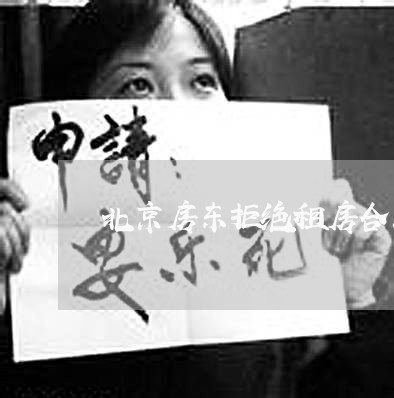 申請：
北京房东拒绝租房合
安乐死